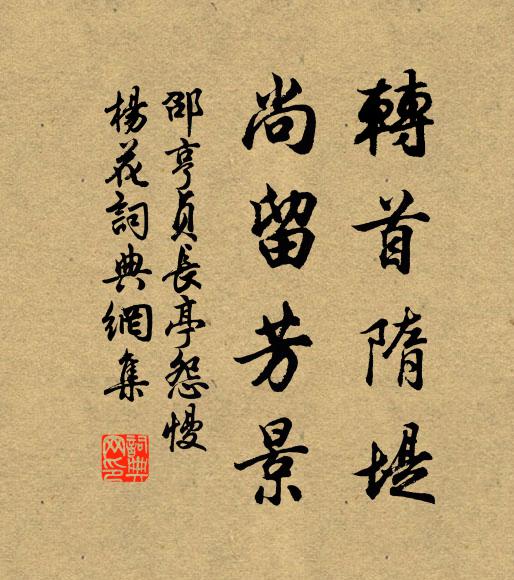 轉首隋堤
尚留芳景
邵亨貞長亭怨慢
楊花詞典網集
詞典
网印